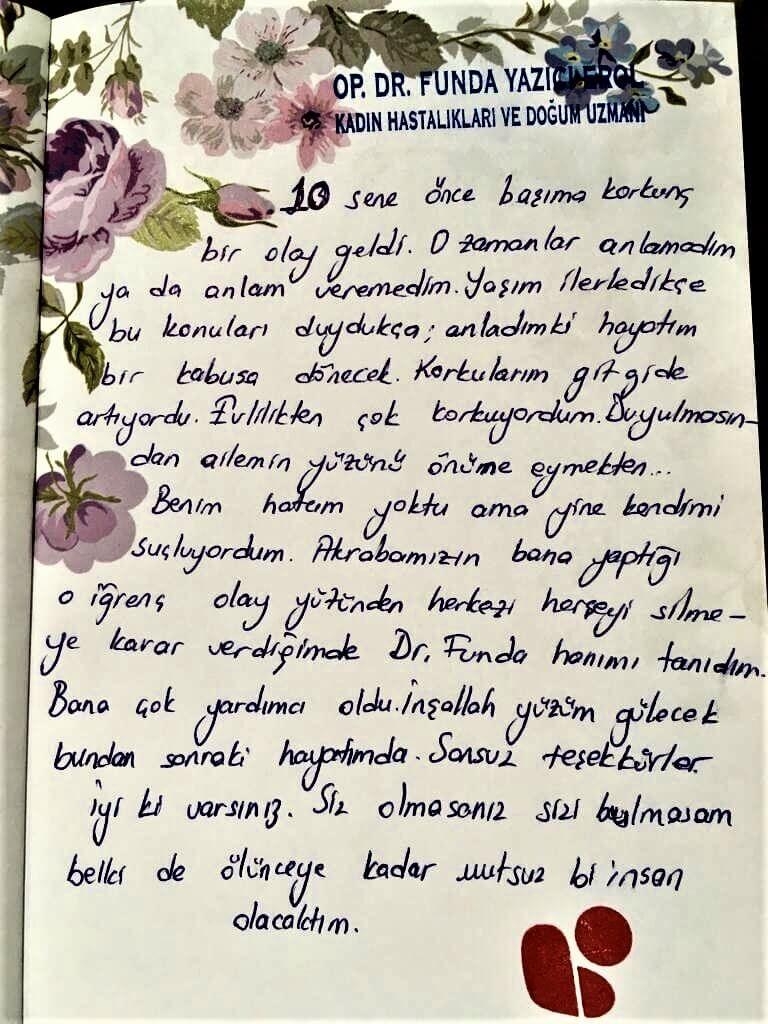 OP. DR. FUNDA YAZICI EROL
KADIN HASTALIKLARI VE DOĞUM UZMANI
10 sene önce başıma korkunç
bir olay geldi. O zamanlar anlamadım
ya da anlam veremedim. Yaşım ilerledikçe
bu konuları duydukça; anladımki hayatım
bir kabusa dönecek. Korkularım git gide
artıyordu. Evlilikten çok korkuyordum. Duyulmasın-
dan ailemin yüzünü önüme eymekten...
Benim hatam yoktu ama yine kendimi
suçluyordum. Akrabamızın bana yaptığı
o iğrenç olay yüzünden herkezi herşeyi silme-
ye karar verdiğimde Dr. Funda hanımı tanıdım.
Bana çok yardımcı oldu. İnşallah yüzüm gülecek
bundan sonraki hayatımda. Sonsuz teşekkürler.
İyi ki varsınız. Siz olmasanız sizi bulmasam
belki de ölünceye kadar mutsuz bi insan
olacaktım.